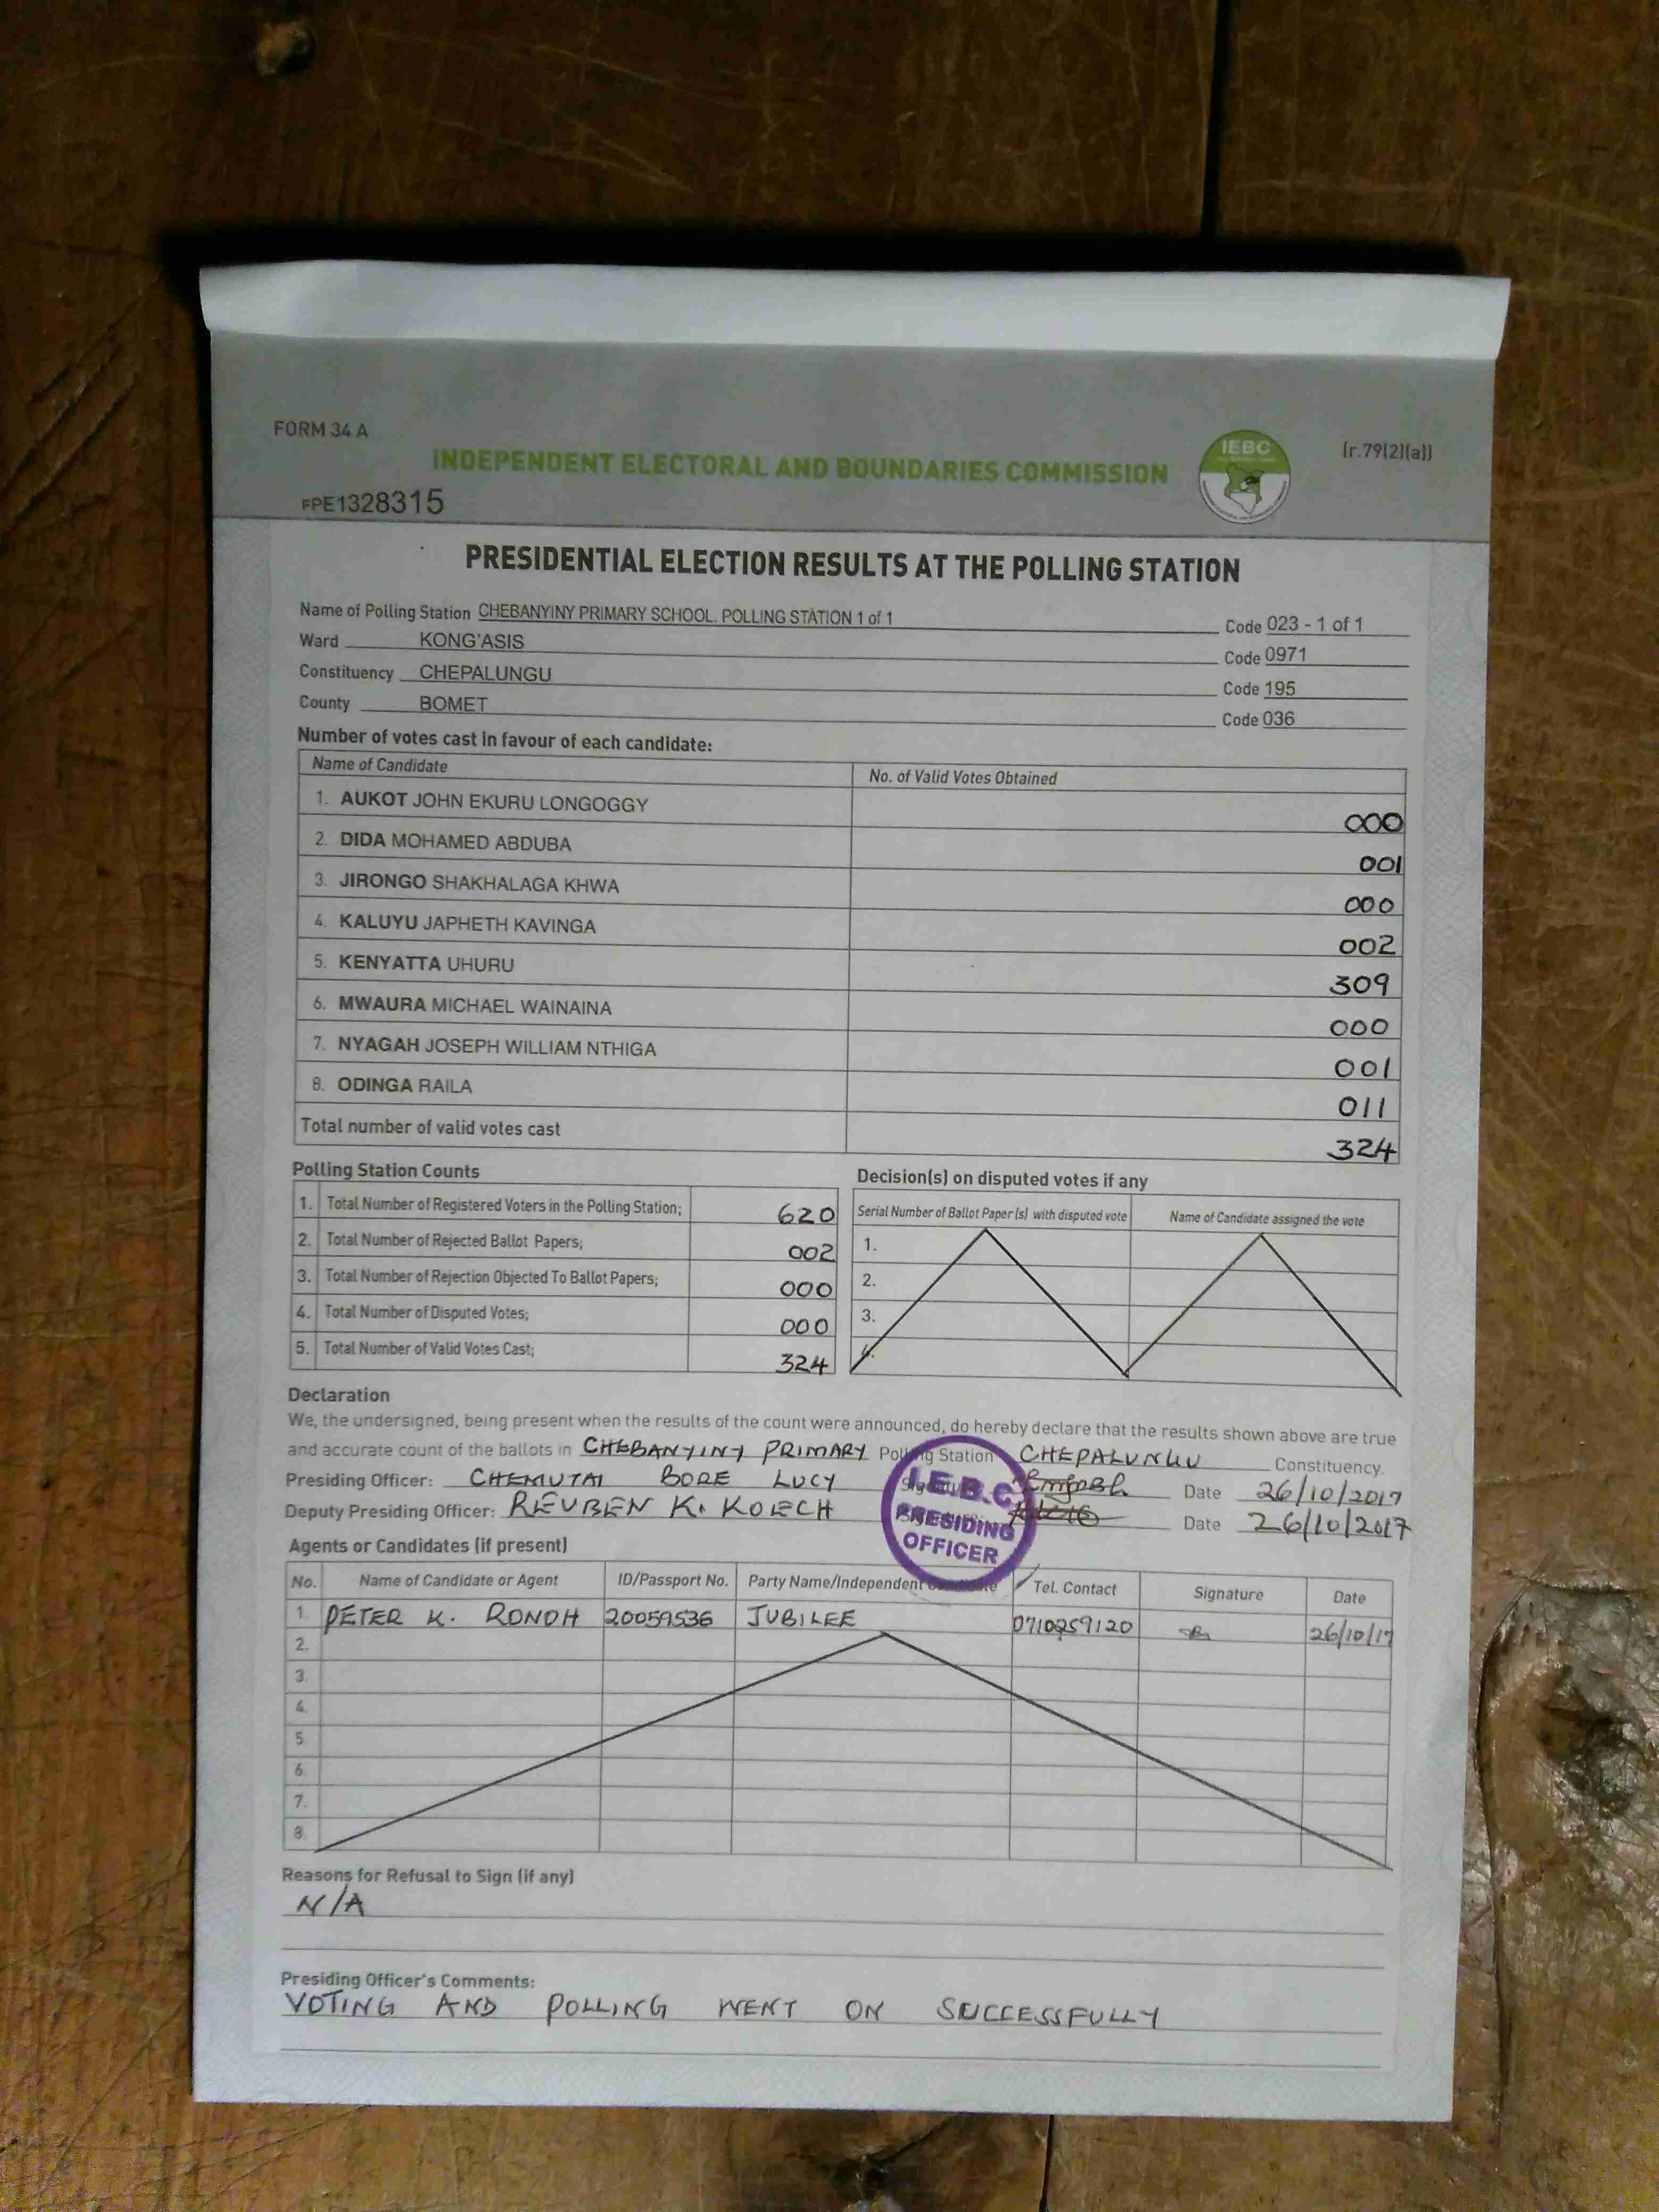 FORM 34 A
(r.79(2)(a))
INDEPENDENT ELECTORAL AND BOUNDARIES COMMISSION
IEBC
FPE1328315
PRESIDENTIAL ELECTION RESULTS AT THE POLLING STATION
Name of Polling Station CHEBANYINY PRIMARY SCHOOL. POLLING STATION 1 of 1 Code 023 - 1 of 1
Ward KONG'ASIS Code 0971
Constituency CHEPALUNGU Code 195
County BOMET Code 036
Number of votes cast in favour of each candidate:
Name of Candidate No. of Valid Votes Obtained
1. AUKOT JOHN EKURU LONGOGGY 000
2. DIDA MOHAMED ABDUBA 001
3. JIRONGO SHAKHALAGA KHWA 000
4. KALUYU JAPHETH KAVINGA 002
5. KENYATTA UHURU 309
6. MWAURA MICHAEL WAINAINA 000
7. NYAGAH JOSEPH WILLIAM NTHIGA 001
8. ODINGA RAILA 011
Total number of valid votes cast 324
Polling Station Counts
1. Total Number of Registered Voters in the Polling Station; 620
2. Total Number of Rejected Ballot Papers; 002
3. Total Number of Rejection Objected To Ballot Papers; 000
4. Total Number of Disputed Votes; 000
5. Total Number of Valid Votes Cast; 324
Decision(s) on disputed votes if any
Serial Number of Ballot Paper (s) with disputed vote Name of Candidate assigned the vote
1.
2.
3.
4.
Declaration
We, the undersigned, being present when the results of the count were announced, do hereby declare that the results shown above are true
and accurate count of the ballots in CHEBANYINY PRIMARY Polling Station CHEPALUNGU Constituency.
Presiding Officer: CHEMUTAI BORE LUCY Signature Date 26/10/2017
Deputy Presiding Officer: REUBEN K. KOECH Date 26/10/2017
I.E.B.C
PRESIDING
OFFICER
Agents or Candidates (if present)
No. Name of Candidate or Agent ID/Passport No. Party Name/Independent Candidate Tel. Contact Signature Date
1. PETER K. RONOH 20059536 JUBILEE 0710259120 26/10/17
2.
3.
4.
5.
6.
7.
8.
Reasons for Refusal to Sign (if any)
N/A
Presiding Officer's Comments:
VOTING AND POLLING WENT ON SUCCESSFULLY